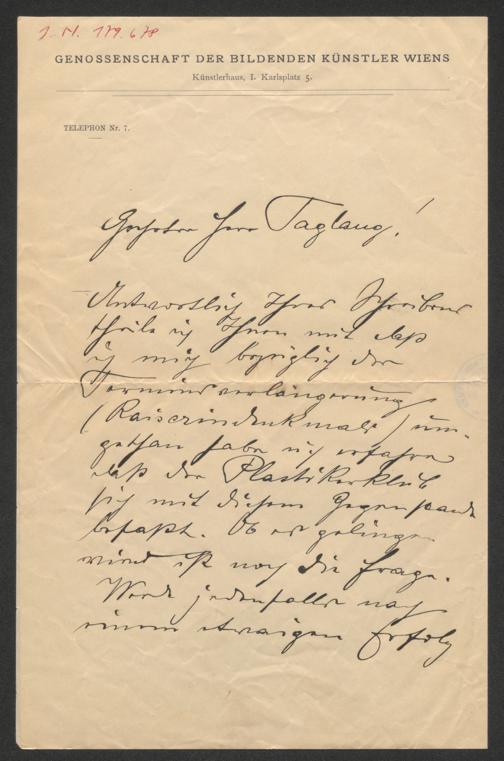 J. N. 179.678
GENOSSENSCHAFT DER BILDENDEN KÜNSTLER WIENS
Künstlerhaus, I. Karlsplatz 5.
TELEPHON Nr. 7.
Geehrter Herr Taglang!
Antwortlich Ihres Schreibens
theile ich Ihnen mit daß
ich mich bezüglich der
Terminsverlängerung
(Kaiserindenkmals) um-
gethan habe und erfahre
daß der Plastikerklub
sich mit diesem Gegenstande
befaßt. Ob es gelingen
wird ist noch die Frage.
Werde jedenfalls nach
einem etwaigen Erfolg